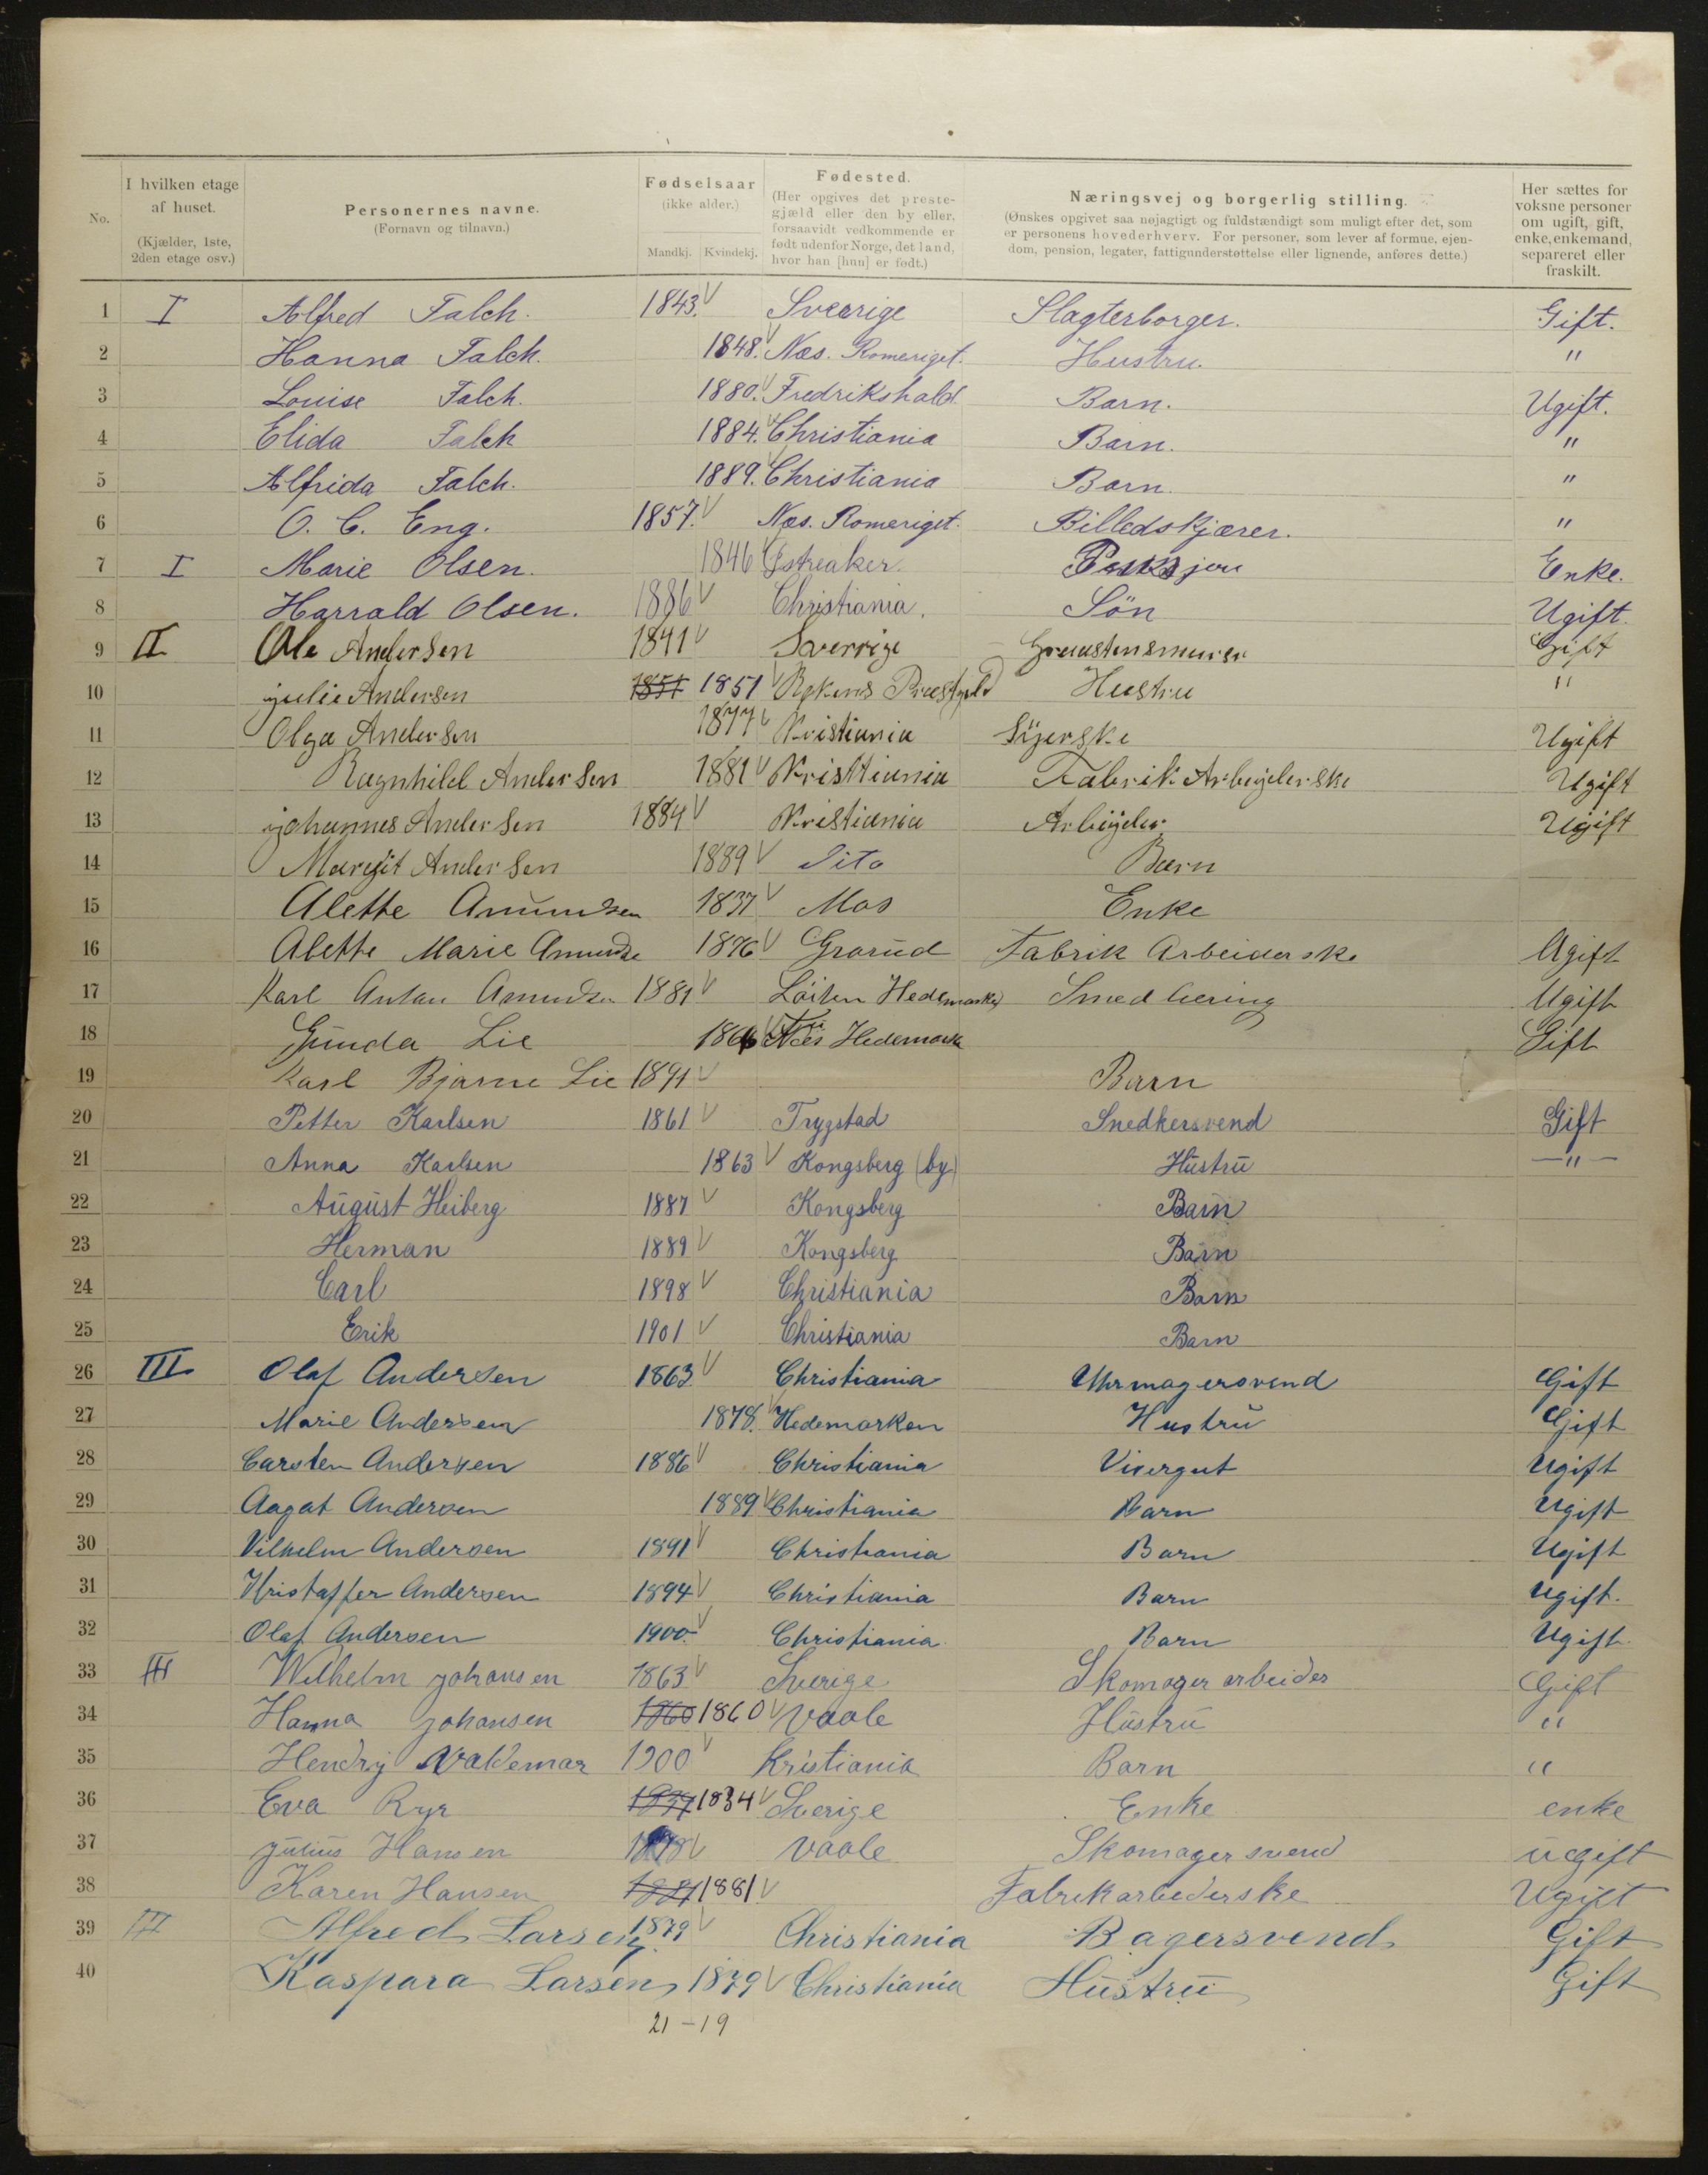 No.
I hvilken etage af huset. (Kjælder, 1ste, 2den etage osv.)
Personernes navne. (Fornavn og tilnavn.)
Fødselsaar (ikke alder.) Mandkj. Kvindekj.
Fødested. (Her opgives det prestegjæld eller den by eller, forsaavidt vedkommende er født udenfor Norge, det land, hvor han [hun] er født.)
Næringsvej og borgerlig stilling. (Ønskes opgivet saa nøjagtigt og fuldstændigt som muligt efter det, som er personens hovederhverv. For personer, som lever af formue, ejendom, pension, legater, fattigunderstøttelse eller lignende, anføres dette.)
Her sættes for voksne personer om ugift, gift, enke, enkemand, separeret eller fraskilt.
1 I Alfred Falch. 1843. Sverrige Slagterborger. Gift.
2 Hanna Falch. 1848. Næs. Romeriget. Hustru. "
3 Louise Falch. 1880. Fredrikshald Barn. Ugift.
4 Elida Falch 1884. Christiania Barn. "
5 Alfrida Falch. 1889. Christiania Barn. "
6 O. C. Eng. 1857. Næs. Romeriget. Billedskjærer. "
7 I Marie Olsen. 1846 Østreaker. Enke.
8 Harrald Olsen. 1886 Christiania. Søn Ugift.
9 II Ole Andersen 1841 Sverrige Graastensmurer Gift
10 julie Andersen 1851 1851 Røkens Præstgeld Hustru "
11 Olga Andersen 1877 Kristiania Syerske Ugift
12 Ragnhild Andersen 1881 Kristtiania Fabrik Arbeyderske Ugift
13 johannes Andersen 1884 Kristiania Arbeyder Ugift
14 Margit Andersen 1889 Dito Barn
15 Alette Amundsen 1837 Mos Enke
16 Alette Marie Amundse 1876 Grorud Fabrik Arbeiderske Ugift
17 Karl Antau Amundsen 1881 Löiten Hedemarken Smedlæring Ugift
18 Gunda Lie 1866 Næs Hedemark Gift
19 Karl Bjarne Lie 1891 Barn
20 Petter Karlsen 1861 Trygstad Snedkersvend Gift
21 Anna Karlsen 1863 Kongsberg (by) Hustru — " —
22 August Heiberg 1887 Kongsberg Barn
23 Herman 1889 Kongsberg Barn
24 Carl 1898 Christiania Barn
25 Erik 1901 Christiania Barn
26 III Olaf Andersen 1863 Christiania Uhrmagersvend Gift
27 Marie Andersen 1878. Hedemarken Hustru Gift
28 Carsten Andersen 1886 Christiania Visergut Ugift
29 Aagot Andersen 1889 Christiania Barn Ugift
30 Vilhelm Andersen 1891 Christiania Barn Ugift
31 Kristoffer Andersen 1894 Christiania Barn Ugift.
32 Olaf Andersen 1900. Christiania Barn Ugift.
33 III Wilhelm johansen 1863 Sverige Skomager arbeider Gift
34 Hanna johansen 1860 1860 Vaale Hustru "
35 Hendrij Valdemar 1900 Kristiania Barn "
36 Eva Ryr 1834 1834 Sverige Enke enke
37 julius Hansen Vaale Skomager svend ugift
38 Karen Hansen 1881 1881 Fabrekarbederske Ugift
39 III Alfred Larsen 1879 Christiania Bagersvend Gift
40 Kaspara Larsen 1879 Christiania Hustru Gift
21 – 19